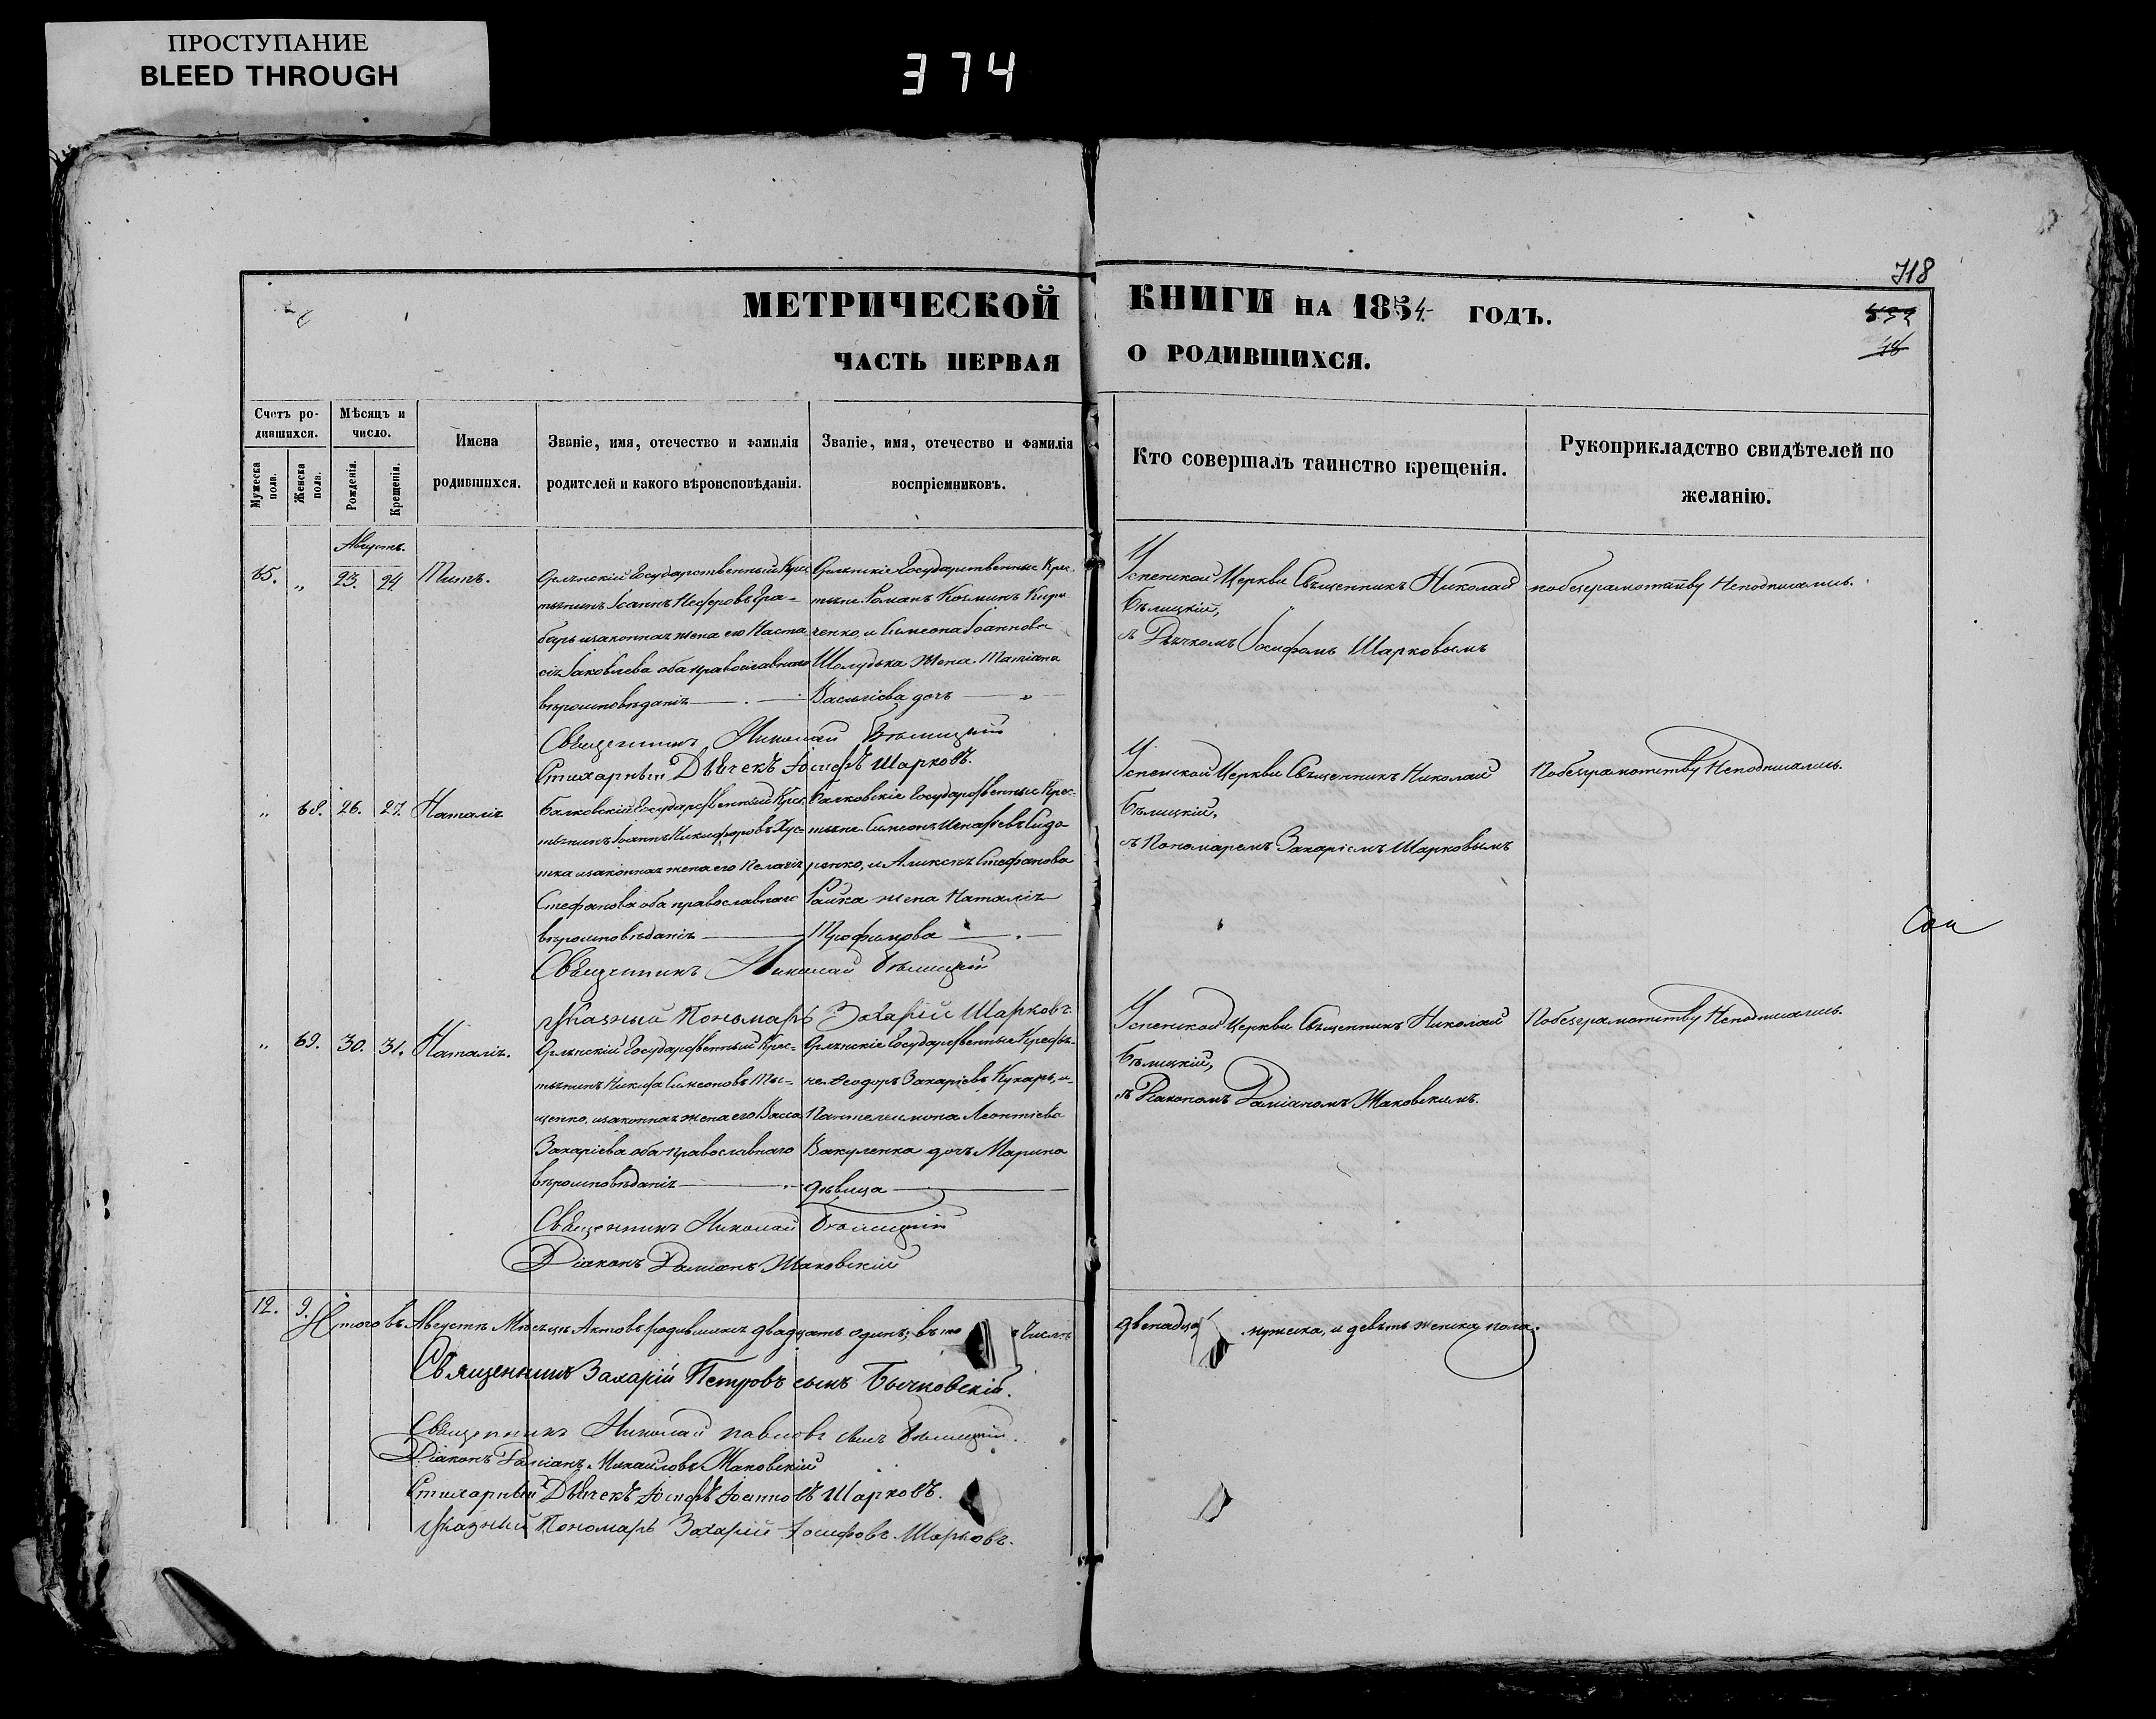 ПРОСТУПАНИЕ
BLEED THROUGH
374
718
МЕТРИЧЕСКОЙ КНИГИ НА 1854 ГОДЪ.
ЧАСТЬ ПЕРВАЯ О РОДИВШИХСЯ.
Счетъ родившихся.
Мужеска пола.
Женска пола.
Мѣсяцъ и число.
Рожденія.
Крещенія.
Имена родившихся.
Званіе, имя, отечество и фамилія родителей и какого вѣроисповѣданія.
Званіе, имя, отечество и фамилія воспріемниковъ.
Кто совершалъ таинство крещенія.
Рукоприкладство свидѣтелей по желанію.
Августъ.
65. „ 23. 24. Титъ.
Государственный Крес
тьянинъ Іоаннъ
барь изаконная жена его Наста
сія Іаковлева оба православнаго
вѣроисповѣданія
Государственные Крес
тьяне Романъ Козминъ
ченко, и Симеона Іоаннова
Шолудька жена Татіана
Васыліева дочь
Успенской Церкви Свѣщенникъ Николай
Бѣлицкій,
съ Дьячкомъ Іосифомъ Шарковымъ
побезграмотству Неподписались.
Священникъ Николай Бѣлицкій
Стихарный Дьячекъ Іосифъ Шарковъ.
„ 68. 26. 27. Наталія
Балковскій Государственный Крес
тьянинъ Іоаннъ Никифоровъ Хус=
тка изаконная жена его Пелагія
Стефанова оба православнаго
вѣроисповѣданія
Балковскіе Государственные Крес=
тьяне Симеонъ Сидо
ренко, и Стефанова
Райка жена Наталія
Трофимова
Успенской Церкви Свѣщенникъ Николай
Бѣлицкій,
съ Пономаремъ Захаріемъ Шарковымъ
Побезграмотству Неподписались.
Священникъ Николай Бѣлицкій
Указный Пономарь Захарій Шарковъ.
„ 69. 30. 31. Наталія.
Государственный Крес=
тьянинъ Никита Симеоновъ
щенко, изаконная жена его Васса
Захаріева оба православнаго
вѣроисповѣданія
Государственные Кресть=
не Ѳеодоръ Захаріевъ Кухарь, и
Пантелеимона Леонтіева
Вакуленка дочь Марина
дѣвица
Успенской Церкви Свѣщенникъ Николай
Бѣлицкій,
съ Діакономъ Даміаномъ Маковскимъ.
Побезграмотству Неподписались.
Священникъ Николай Бѣлицкій
Діаконъ Даміанъ Маковскій
12. 9. Итого въ Августѣ Мѣсяцѣ Актовъ родившихся двадцать одинъ; въ то числѣ двенадца мужеска, и девѣть женска пола.
Священникъ Захарій Петровъ сынъ Бычковскій.
Священникъ Николай Павловъ сынъ Бѣлицкій.
Діаконъ Даміанъ Михаиловъ Маковскій
Стихарный Дьячекъ Іосифъ Іоанновъ Шарковъ.
Указный Пономарь Захарій Іосифовъ Шарковъ.